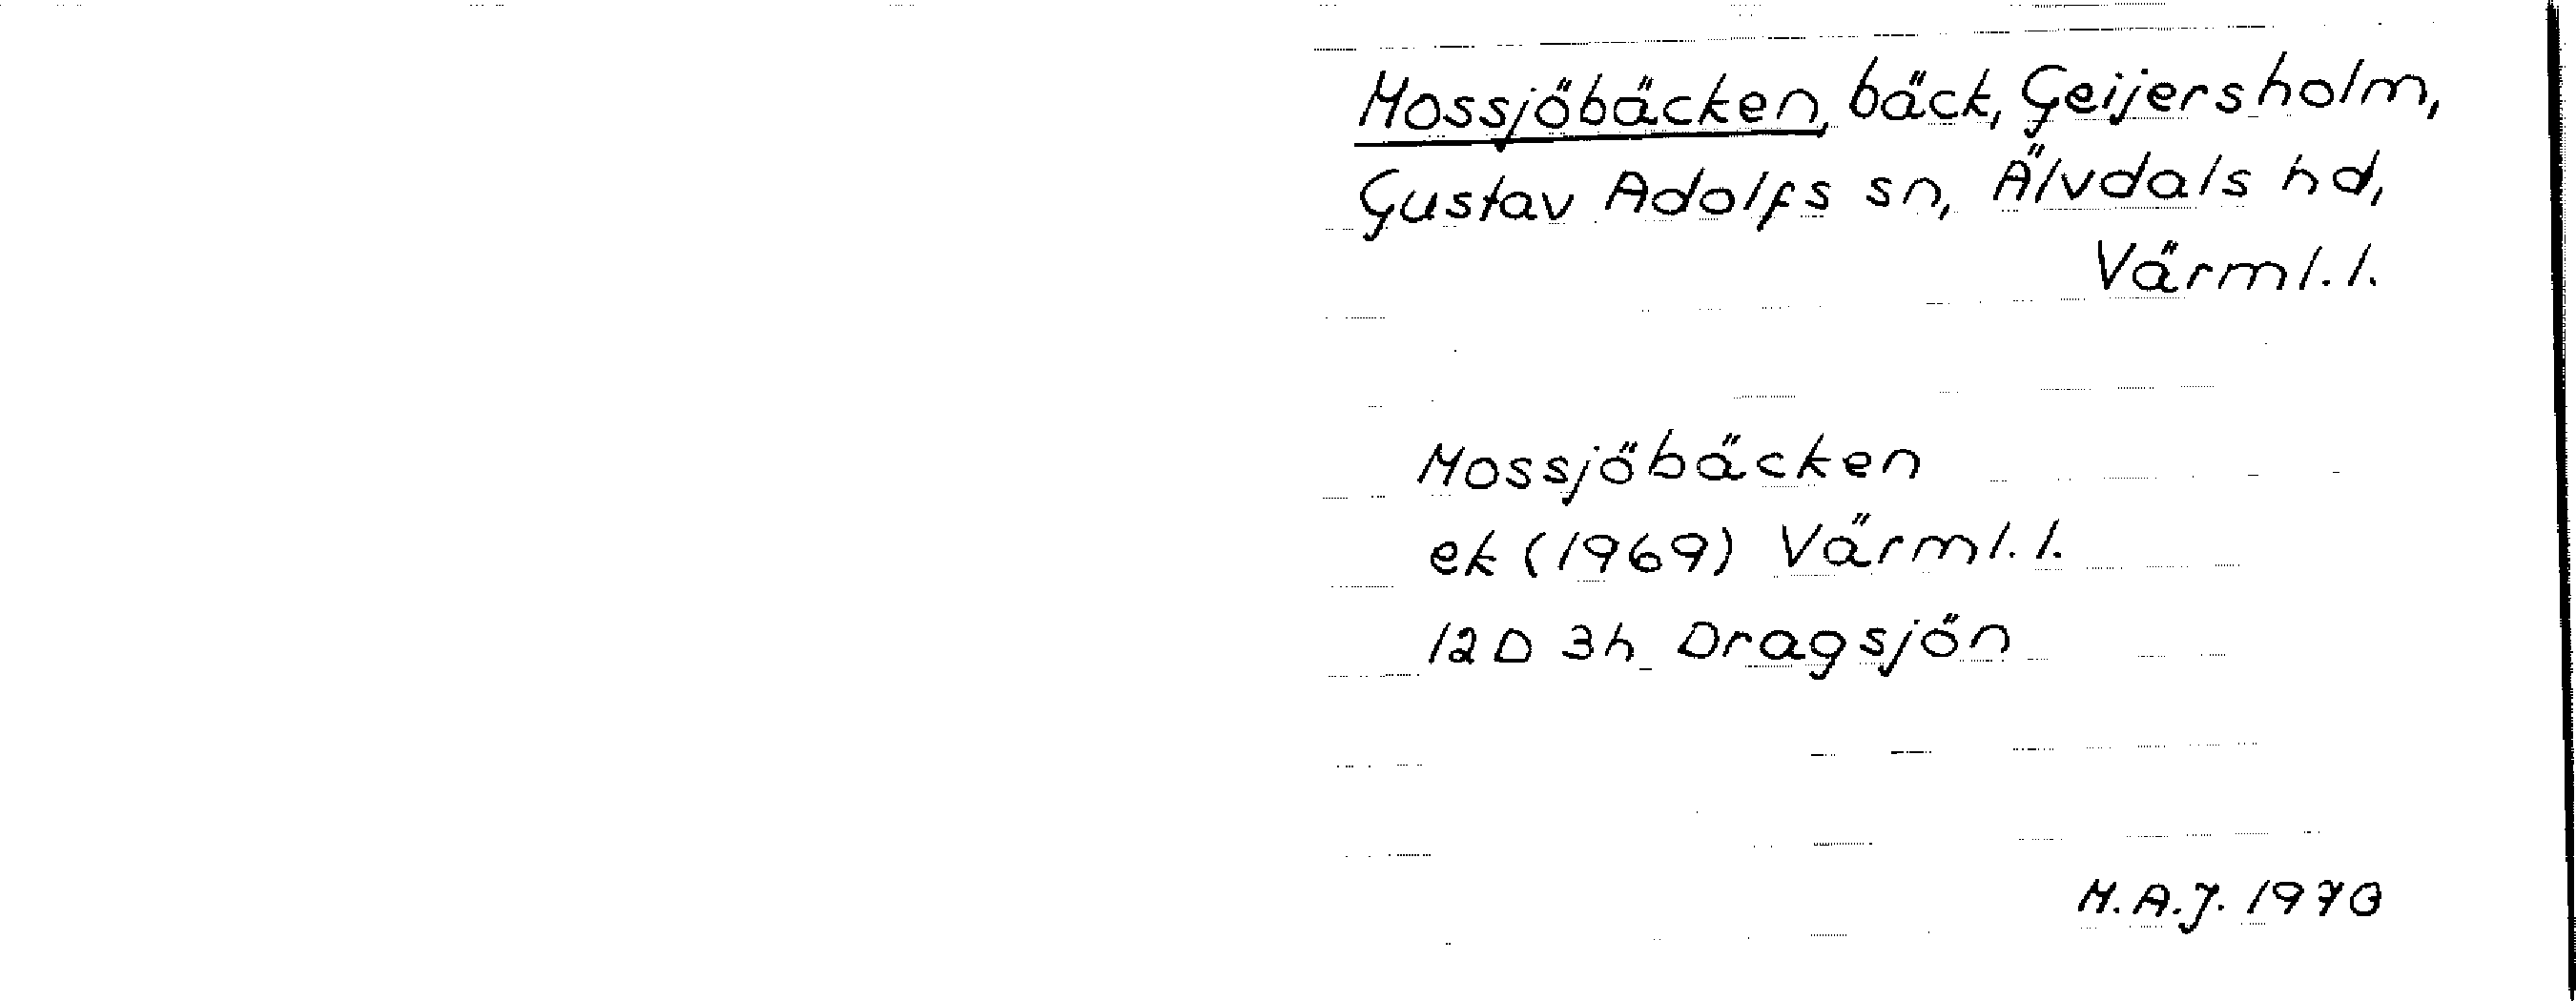 Mossjöbäcken, bäck, Geijersholm,
Gustav Adolfs sn, Älvdals hd,
Värml. l.
Mossjöbäcken
ek (1969) Värml. l.
12D 3h Dragsjön
M.A.J. 1973